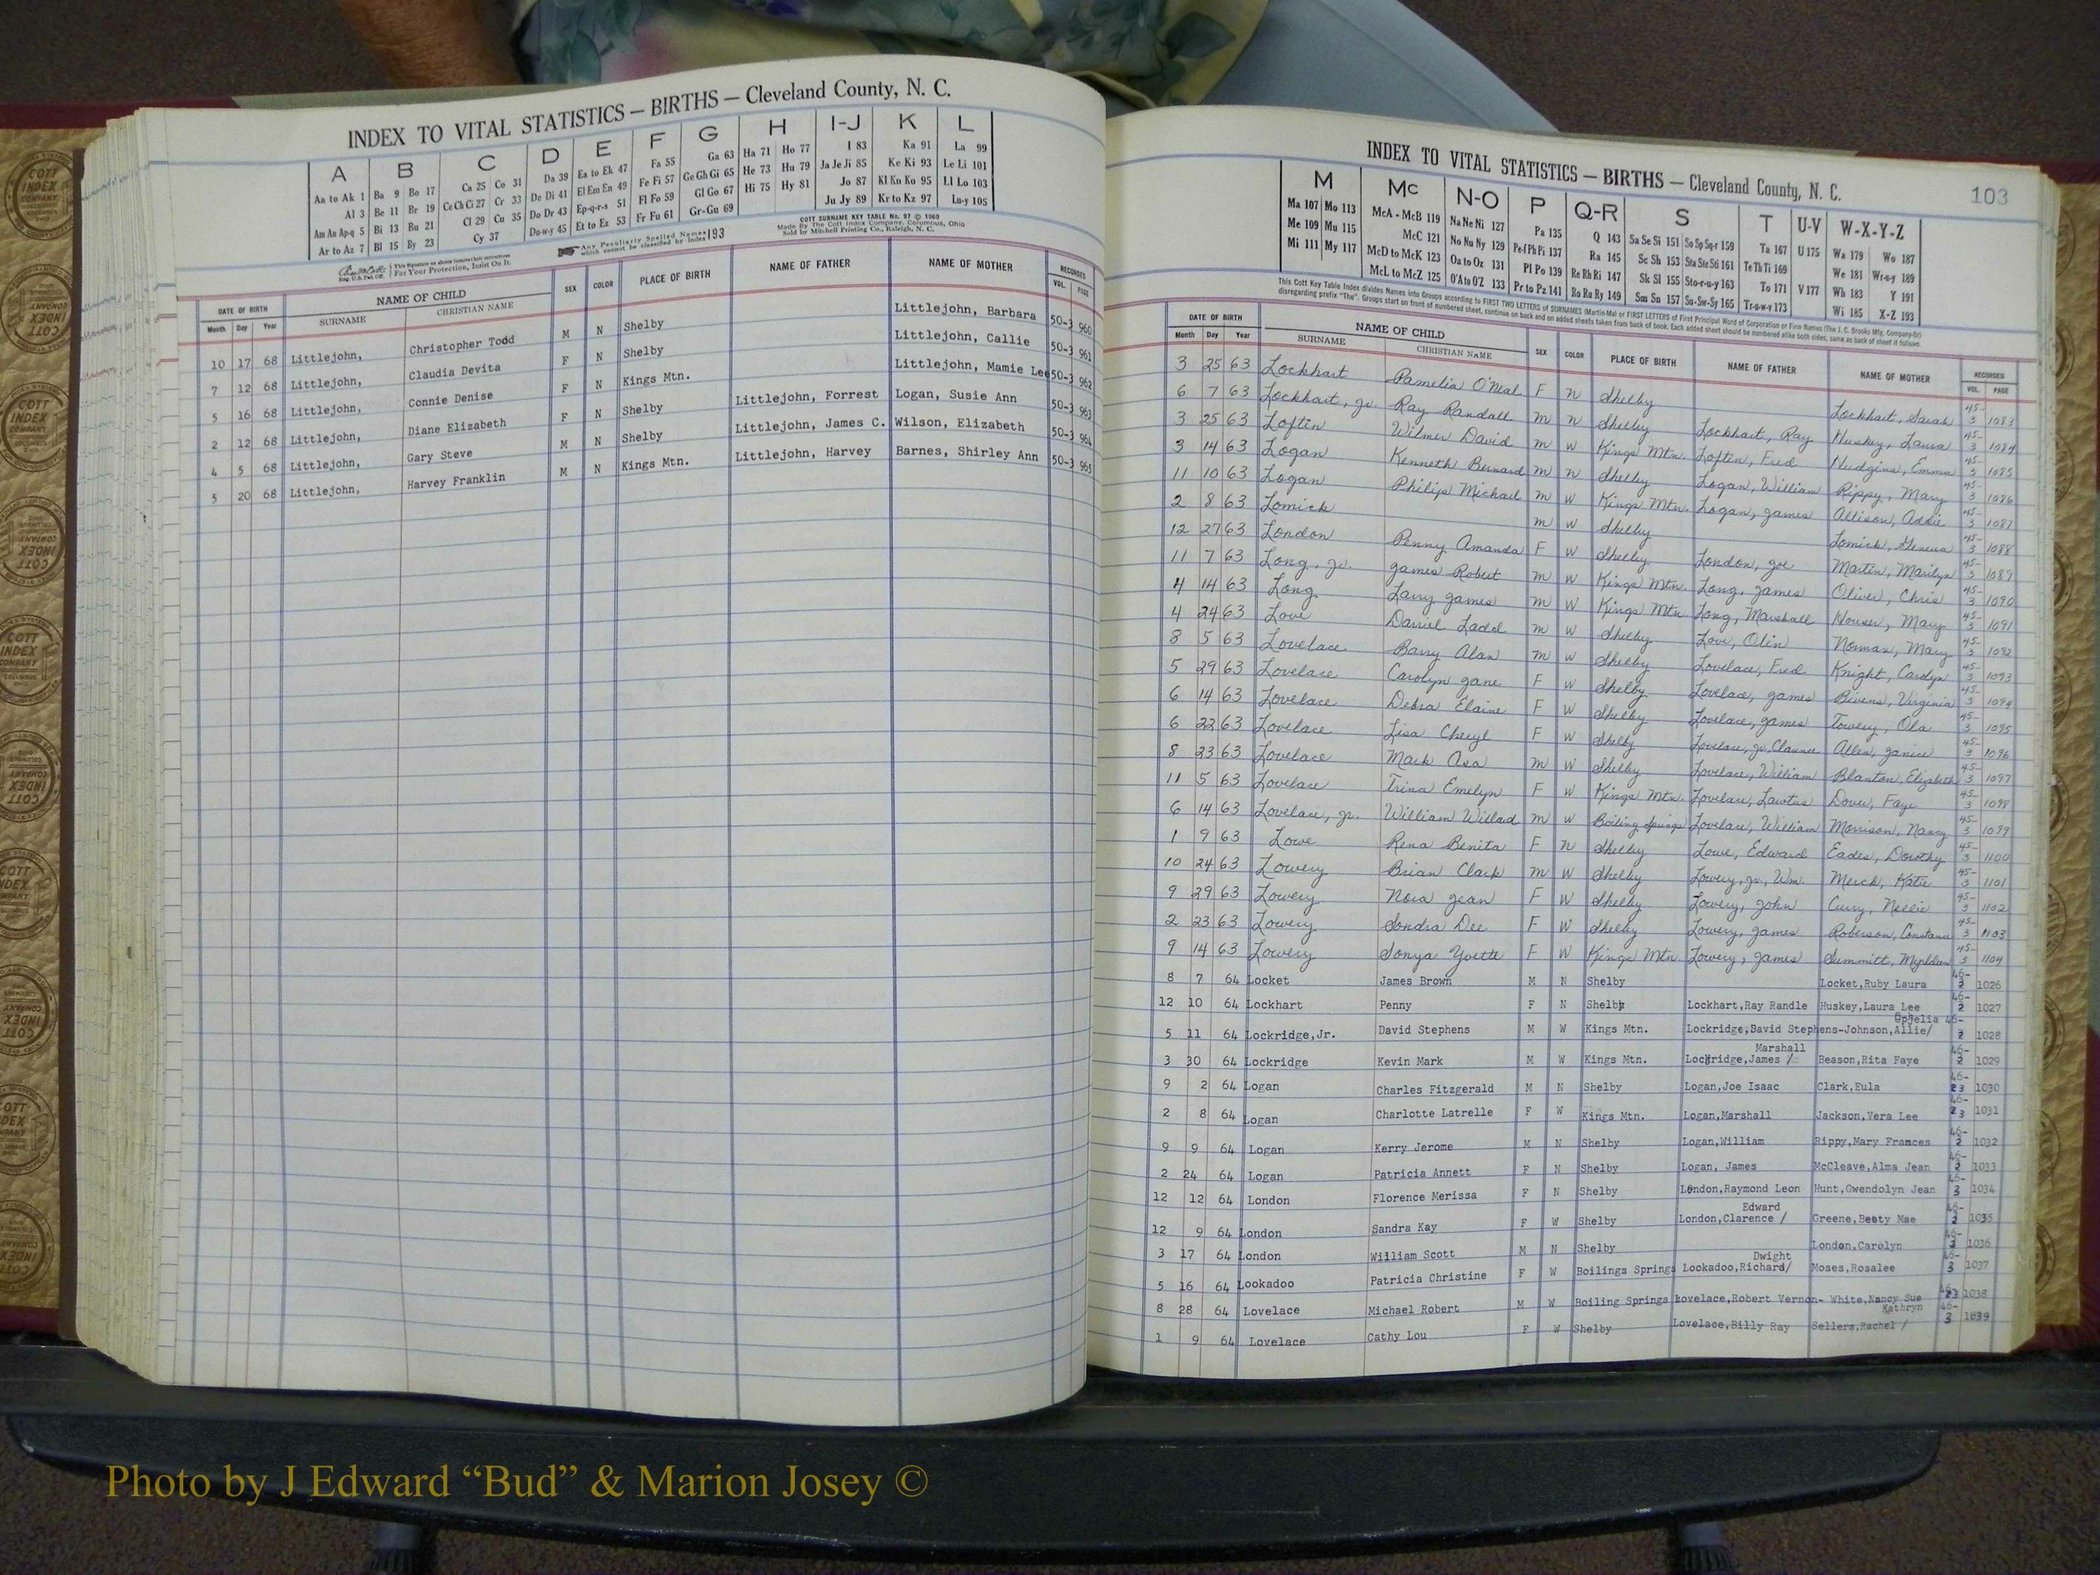 INDEX TO VITAL STATISTICS — BIRTHS — Cleveland County, N. C.
A B C D E F G H I-J K L
Aa to Ak 1 Ba 9 Bo 17 Ca 25 Co 31 Da 39 Ea to Ek 47 Fa 55 Ga 63 Ha 71 Ho 77 I 83 Ka 91 La 99
Al 3 Be 11 Br 19 Ce Ch Ci 27 Cr 33 De Di 41 El Em En 49 Fe Fi 57 Ge Gh Gi 65 He 73 Hu 79 Ja Je Ji 85 Ke Ki 93 Le Li 101
Am An Ap-q 5 Bi 13 Bu 21 Cl 29 Cu 35 Do Dr 43 Ep-q-r-s 51 Fl Fo 59 Gl Go 67 Hi 75 Hy 81 Jo 87 Kl Kn Ko 95 Ll Lo 103
Ar to Az 7 Bl 15 By 23 Cy 37 Du-w-y 45 Et to Ez 53 Fr Fu 61 Gr-Gu 69 Ju Jy 89 Kr to Kz 97 Lu-y 105
COTT SURNAME KEY TABLE No. 97 © 1960
Made By The Cott Index Company, Columbus, Ohio
Sold by Mitchell Printing Co., Raleigh, N. C.
Any Peculiarly Spelled Names which cannot be classified by Index 193
For Your Protection, Insist On It.
DATE OF BIRTH NAME OF CHILD SEX COLOR PLACE OF BIRTH NAME OF FATHER NAME OF MOTHER RECORDED
Month Day Year SURNAME CHRISTIAN NAME VOL. PAGE
10 17 68 Littlejohn, Christopher Todd M N Shelby Littlejohn, Barbara 50-3 960
7 12 68 Littlejohn, Claudia Devita F N Shelby Littlejohn, Callie 50-3 961
5 16 68 Littlejohn, Connie Denise F N Kings Mtn. Littlejohn, Mamie Lee 50-3 962
2 12 68 Littlejohn, Diane Elizabeth F N Shelby Littlejohn, Forrest Logan, Susie Ann 50-3 963
4 5 68 Littlejohn, Gary Steve M N Shelby Littlejohn, James C. Wilson, Elizabeth 50-3 964
5 20 68 Littlejohn, Harvey Franklin M N Kings Mtn. Littlejohn, Harvey Barnes, Shirley Ann 50-3 965
INDEX TO VITAL STATISTICS — BIRTHS — Cleveland County, N. C. 103
M Mc N-O P Q-R S T U-V W-X-Y-Z
Ma 107 Mo 113 McA - McB 119 Na Ne Ni 127 Pa 135 Q 143 Sa Se Si 151 So Sp Sq-r 159 Ta 167 U 175 Wa 179 Wo 187
Me 109 Mu 115 McC 121 No Nu Ny 129 Pe-f Ph Pi 137 Ra 145 Sc Sh 153 Sta Ste Sti 161 Te Th Ti 169 We 181 Wr-u-y 189
Mi 111 My 117 McD to McK 123 Oa to Oz 131 Pl Po 139 Re Rh Ri 147 Sk Sl 155 Sto-r-u-y 163 To 171 V 177 Wh 183 Y 191
McL to McZ 125 O'A to O'Z 133 Pr to Pz 141 Ro Ru Ry 149 Sm Sn 157 Su-Sw-Sy 165 Tr-u-w-y 173 Wi 185 X-Z 193
This Cott Key Table Index divides Names into Groups according to FIRST TWO LETTERS of SURNAMES (Martin-Ma) or FIRST LETTERS of First Principal Word of Corporation or Firm Names (The J. C. Brooks Mfg. Company-Br)
disregarding prefix "The". Groups start on front of numbered sheet, continue on back and on added sheets taken from back of book. Each added sheet should be numbered alike both sides, same as back of sheet it follows.
DATE OF BIRTH NAME OF CHILD SEX COLOR PLACE OF BIRTH NAME OF FATHER NAME OF MOTHER RECORDED
Month Day Year SURNAME CHRISTIAN NAME VOL. PAGE
3 25 63 Lockhart Pamelia O'Neal F N Shelby Lockhart, Sarah 45-3 1083
6 7 63 Lockhart, Jr. Ray Randall M N Shelby Lockhart, Ray Huskey, Laura 45-3 1084
3 25 63 Loftin Wilmer David M W Kings Mtn. Loftin, Fred Hudgins, Emma 45-3 1085
3 14 63 Logan Kenneth Bernard M N Shelby Logan, William Rippy, Mary 45-3 1086
11 10 63 Logan Philip Michael M W Kings Mtn. Logan, James Allison, Addie 45-3 1087
2 8 63 Lomick M W Shelby Lomick, Geneva 45-3 1088
12 27 63 London Penny Amanda F W Shelby London, Joe Martin, Marilyn 45-3 1089
11 7 63 Long, Jr. James Robert M W Kings Mtn. Long, James Oliver, Chris 45-3 1090
4 14 63 Long Larry James M W Kings Mtn. Long, Marshall Houser, Mary 45-3 1091
4 24 63 Love Darriel Ladd M W Shelby Love, Olin Norman, Mary 45-3 1092
8 5 63 Lovelace Barry Alan M W Shelby Lovelace, Fred Knight, Carolyn 45-3 1093
5 29 63 Lovelace Carolyn Jane F W Shelby Lovelace, James Bivens, Virginia 45-3 1094
6 14 63 Lovelace Debra Elaine F W Shelby Lovelace, James Towery, Ola 45-3 1095
6 22 63 Lovelace Lisa Cheryl F W Shelby Lovelace, Jr, Clarence Allen, Janice 45-3 1096
8 23 63 Lovelace Mark Asa M W Shelby Lovelace, William Blanton, Elizabeth 45-3 1097
11 5 63 Lovelace Trina Emelyn F W Kings Mtn. Lovelace, Lawtus Dover, Faye 45-3 1098
6 14 63 Lovelace, Jr. William Willard M W Boiling Springs Lovelace, William Morrison, Nancy 45-3 1099
1 9 63 Lowe Rena Benita F N Shelby Lowe, Edward Eades, Dorothy 45-3 1100
10 24 63 Lowery Brian Clark M W Shelby Lowery, Jr., Wm. Merck, Katie 45-3 1101
9 29 63 Lowery Nora Jean F W Shelby Lowery, John Curry, Nellie 45-3 1102
2 23 63 Lowery Sondra Dee F W Shelby Lowery, James Roberson, Constance 45-3 1103
9 14 63 Lowery Sonya Yvette F W Kings Mtn Lowery, James Summitt, 45-3 1104
8 7 64 Locket James Brown M N Shelby Locket,Ruby Laura 46-3 1026
12 10 64 Lockhart Penny F N Shelby Lockhart,Ray Randle Huskey,Laura Lee 46-3 1027
5 11 64 Lockridge,Jr. David Stephens M W Kings Mtn. Lockridge,David Stephens-Johnson,Allie/ Ophelia 46-3 1028
3 30 64 Lockridge Kevin Mark M W Kings Mtn. Lockridge,James / Marshall Beason,Rita Faye 46-3 1029
9 2 64 Logan Charles Fitzgerald M N Shelby Logan,Joe Isaac Clark,Eula 46-3 1030
2 8 64 Logan Charlotte Latrelle F W Kings Mtn. Logan,Marshall Jackson,Vera Lee 46-3 1031
9 9 64 Logan Kerry Jerome M N Shelby Logan,William Rippy,Mary Frances 46-3 1032
2 24 64 Logan Patricia Annett F N Shelby Logan, James McCleave,Alma Jean 46-3 1033
12 12 64 London Florence Merissa F N Shelby London,Raymond Leon Hunt,Gwendolyn Jean 46-3 1034
12 9 64 London Sandra Kay F W Shelby London,Clarence / Edward Greene,Betty Mae 46-3 1035
3 17 64 London William Scott M N Shelby London,Carolyn 46-3 1036
5 16 64 Lookadoo Patricia Christine F W Boilings Springs Lookadoo,Richard/ Dwight Moses,Rosalee 46-3 1037
8 28 64 Lovelace Michael Robert M W Boiling Springs Lovelace,Robert Vernon- White,Nancy Sue 46-3 1038
1 9 64 Lovelace Cathy Lou F W Shelby Lovelace,Billy Ray Sellers,Rachel / Kathryn 46-3 1039
Photo by J Edward “Bud” & Marion Josey ©